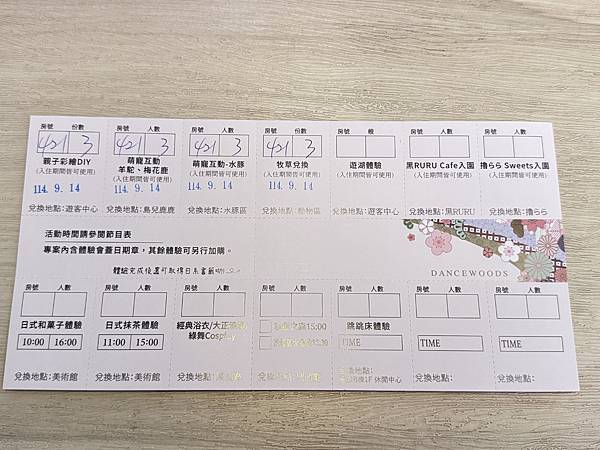 房號 份數
421 3
親子彩繪DIY
(入住期間皆可使用)
114. 9. 14
兌換地點:遊客中心
房號 人數
421 3
萌寵互動
羊駝、梅花鹿
(入住期間皆可使用)
114. 9. 14
兌換地點:島兒鹿鹿
房號 人數
421 3
萌寵互動-水豚
(入住期間皆可使用)
114. 9. 14
兌換地點:水豚區
房號 人數
421 3
牧草兌換
(入住期間皆可使用)
114. 9. 14
兌換地點:動物區
房號 艘
遊湖體驗
兌換地點:遊客中心
房號 人數
黑RURU Cafe入園
(入住期間皆可使用)
兌換地點:黑RURU
房號 人數
擼らら Sweets入園
(入住期間皆可使用)
兌換地點:擼らら
活動時間請參閱節目表
專案內含體驗會蓋日期章，其餘體驗可另行加購。
體驗完成後還可取得日系書籤喲
DANCEWOODS
房號 人數
日式和菓子體驗
10:00 16:00
兌換地點:美術館
房號 人數
日式抹茶體驗
11:00 15:00
兌換地點:美術館
房號 人數
經典浴衣/大正
綠舞Cosplay
兌換地點:
房號 人數
15:00
兌換地點:
房號 人數
跳跳床體驗
TIME
兌換地點:
1F 休閒中心
房號 人數
TIME
兌換地點:
房號 人數
TIME
兌換地點: